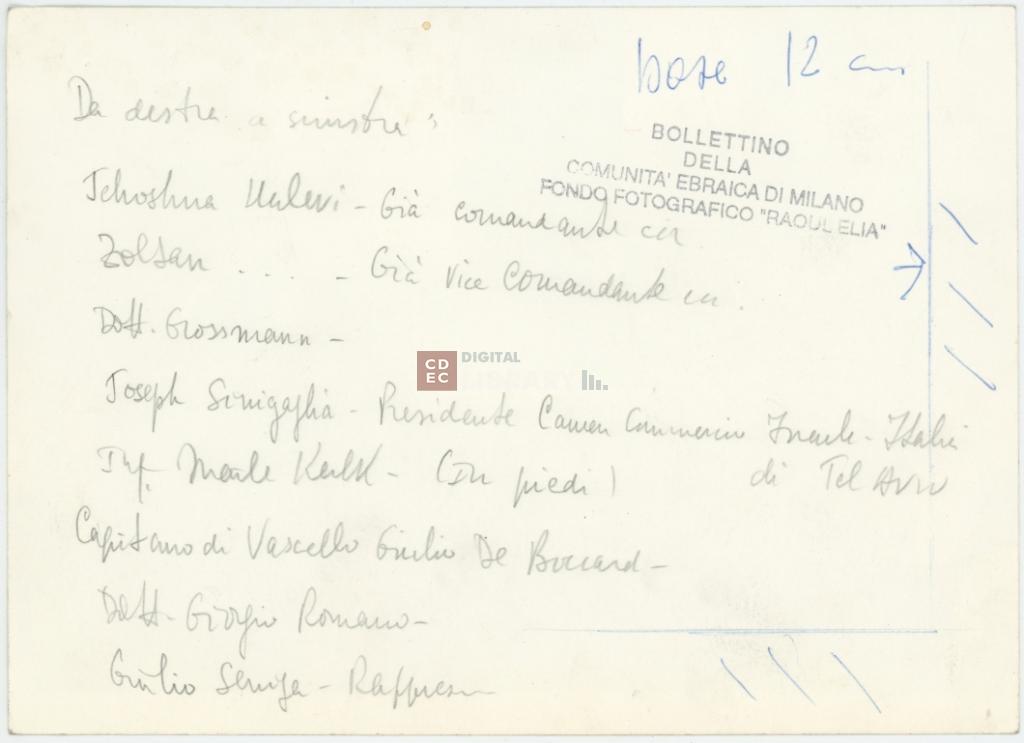 base 12 cm
Da destra a sinistra
BOLLETTINO
DELLA
COMUNITA' EBRAICA DI MILANO
FONDO FOTOGRAFICO "RAOUL ELIA"
Halevi - Già comandante
Zoltan .... - Già Vice Comandante
Dott. Grossmann -
CDEC DIGITAL LIBRARY
Joseph Sinigaglia - Presidente Camera Commercio Israele - Italia
di Tel Aviv
Ing. (In piedi)
Capitano di Vascello Giulio De Boccard -
Dott. Giorgio Romano -
Giulio